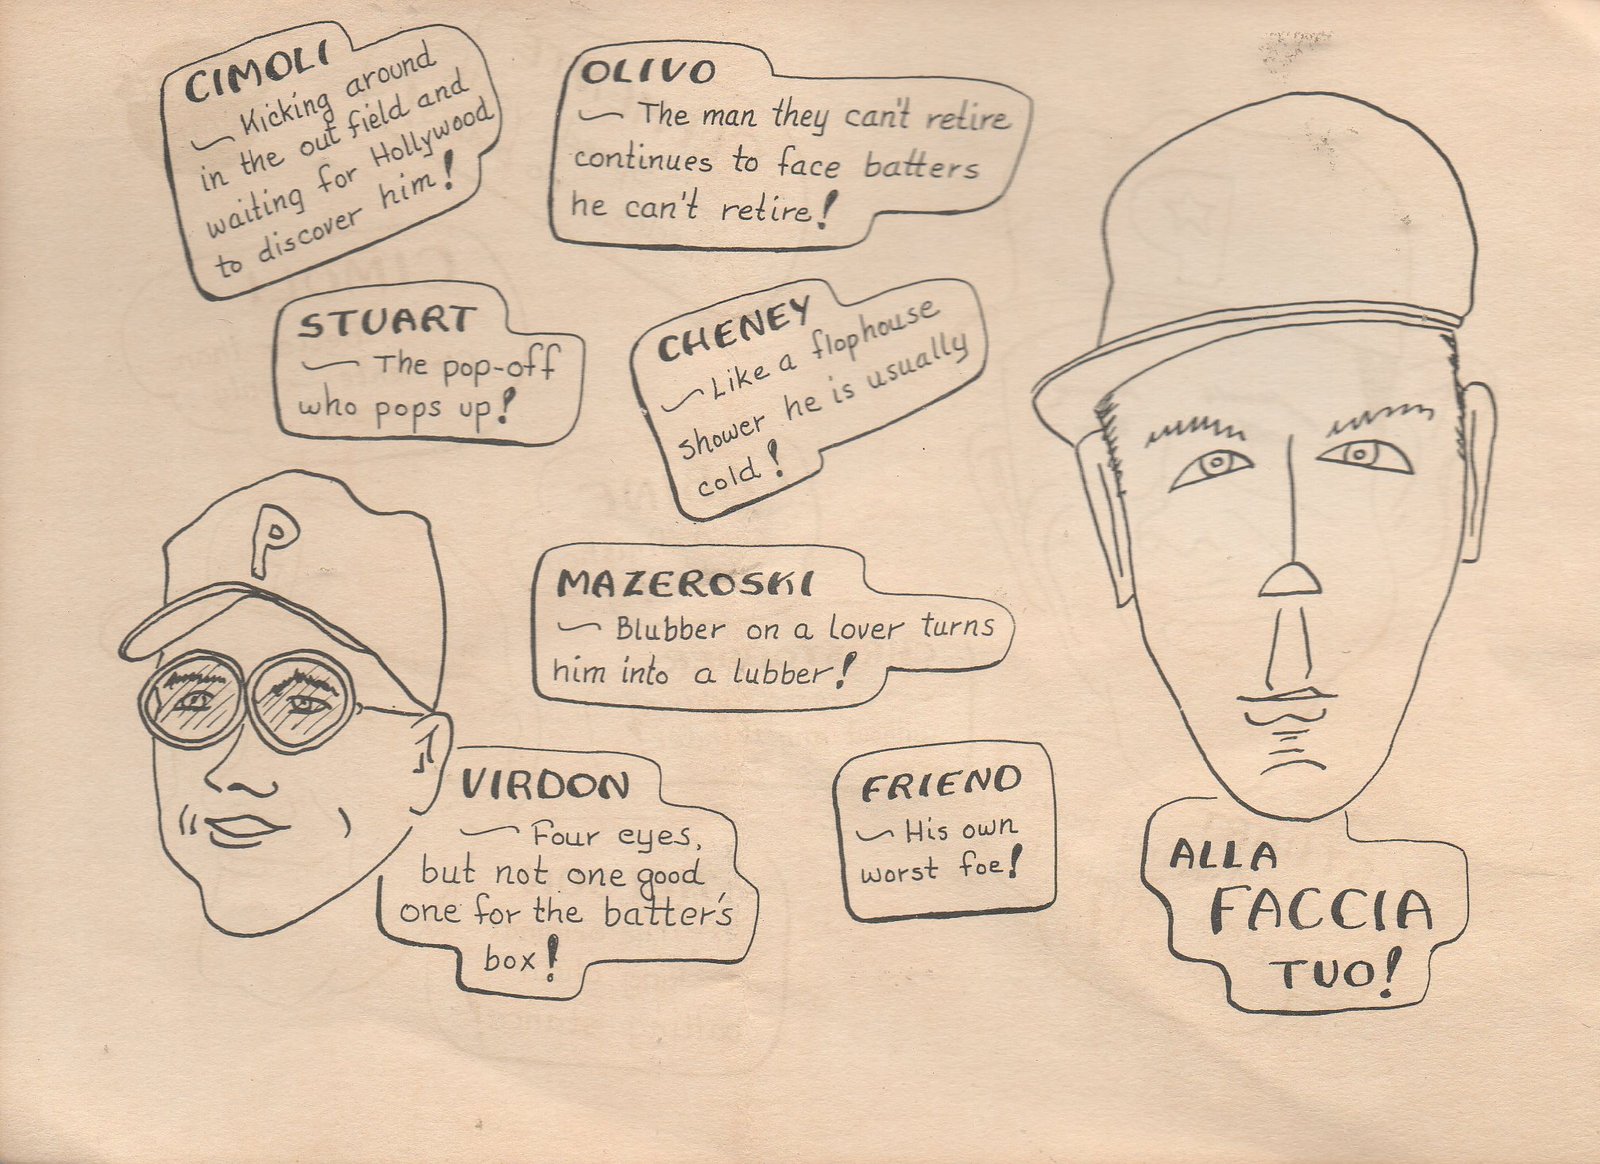 CIMOLI
~ Kicking around
in the out field and
waiting for Hollywood
to discover him!
OLIVO
~ The man they can't retire
continues to face batters
he can't retire!
STUART
~ The pop-off
who pops up!
CHENEY
~ Like a flophouse
shower he is usually
cold!
P
MAZEROSKI
~ Blubber on a lover turns
him into a lubber!
VIRDON
~ Four eyes,
but not one good
one for the batter's
box!
FRIEND
~ His own
worst foe!
ALLA
FACCIA
TUO!